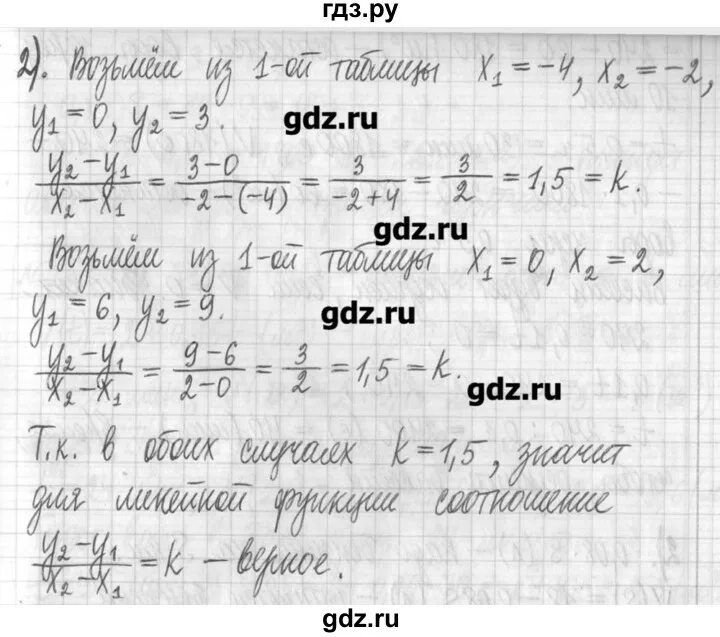 гдз.ру
2). Возьмём из 1-ой таблицы x₁ = -4, x₂ = -2,
y₁ = 0, y₂ = 3.
gdz.ru
(y₂ - y₁)/(x₂ - x₁) = (3 - 0)/(-2 - (-4)) = 3/(-2 + 4) = 3/2 = 1,5 = k.
gdz.ru
Возьмём из 1-ой таблицы x₁ = 0, x₂ = 2,
y₁ = 6, y₂ = 9.
gdz.ru
(y₂ - y₁)/(x₂ - x₁) = (9 - 6)/(2 - 0) = 3/2 = 1,5 = k.
gdz.ru
Т.к. в обоих случаях k = 1,5, значит
для линейной функции соотношение
(y₂ - y₁)/(x₂ - x₁) = k – верное.
gdz.ru